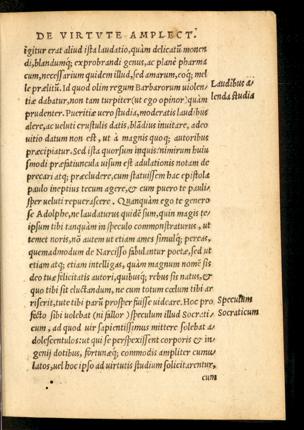 DE VIRTVTE AMPLECT.
igitur erat aliud ista laudatio, quàm delicatũ monen
di, blandumq́; exprobrandi genus, ac planè pharma
cum, necessarium quidem illud, sed amarum, coq́; mel
le prælitũ. Id quod olim regum Barbarorum uiolen-
tiæ dabatur, non tam turpiter (ut ego opinor) quàm
Laudibus a-
prudenter. Pueritiæ uero studia, moderatis laudibus
lenda studia
alere, ac ueluti crustulis datis, blãdius inuitare, adeo
uitio datum non est, ut à magnis quoq; autoribus
præcipiatur. Sed ista quorsum inquis: nimirum huiu
smodi præfatiuncula uisum est adulationis notam de
precari atq; præcludere, cum statuissem hac epistola
paulo ineptius tecum agere, & cum puero te paulis
sper ueluti repuerascere. Quanquàm ego te genero
se Adolphe, ne laudaturus quidẽ sum, quin magis te
ipsum tibi tanquàm in speculo commõstraturus, ut
temet noris, nõ autem ut etiam ames simulq́; pereas,
quemadmodum de Narcisso fabulantur poetæ, sed ut
etiam atq; etiam intelligas, quàm magnum nomẽ sis
deo tuæ felicitatis autori, quibusq́; rebus sis natus, &
quo tibi sit eluctandum, ne cum totum cœlum tibi ar
riserit, tute tibi parũ prosper fuisse uideare. Hoc pro
Speculum
fecto sibi uolebat (ni fallor) speculum illud Socrati-
Socraticum
cum, ad quod uir sapientissimus mittere solebat a-
dolescentulos: ut qui se perspexissent corporis & in-
genij dotibus, fortunæq́; commodis ampliter cumu
latos, uel hoc ipso ad uirtutis studium solicitarentur,
cum